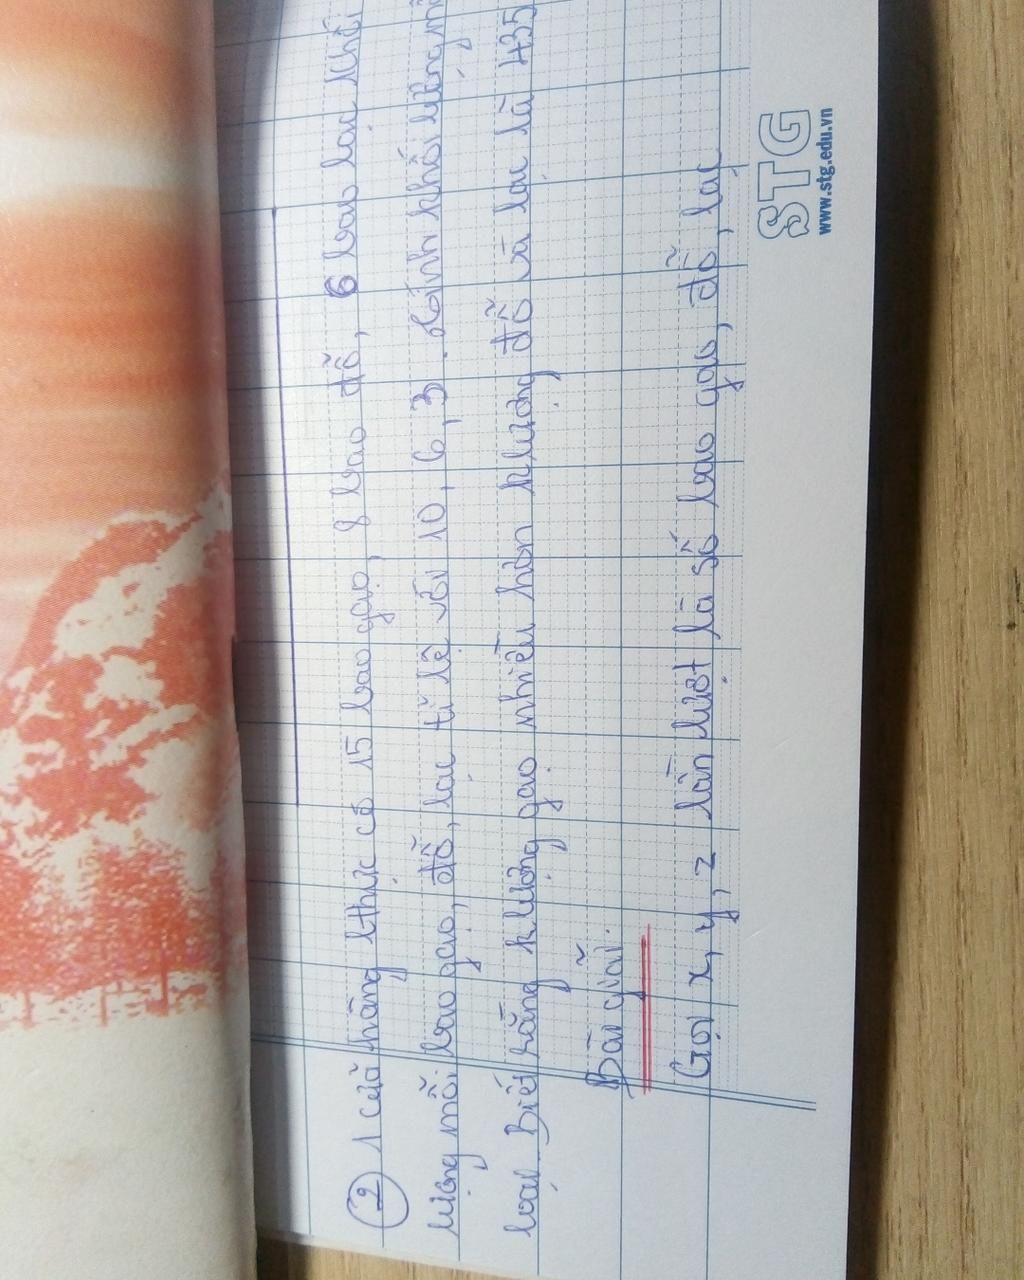 ② 1 cửa hàng lthực có 15 bao gạo, 8 bao đỗ, 6 bao lạc khối
lượng mỗi bao gạo, đỗ, lạc tỉ lệ với 10, 6, 3. Tính khối lượng mỗi
loại. Biết rằng k lượng gạo nhiều hơn k lượng đỗ và lạc là 435
Bài giải:
Gọi x, y, z lần lượt là số bao gạo, đỗ, lạc
STG
www.stg.edu.vn